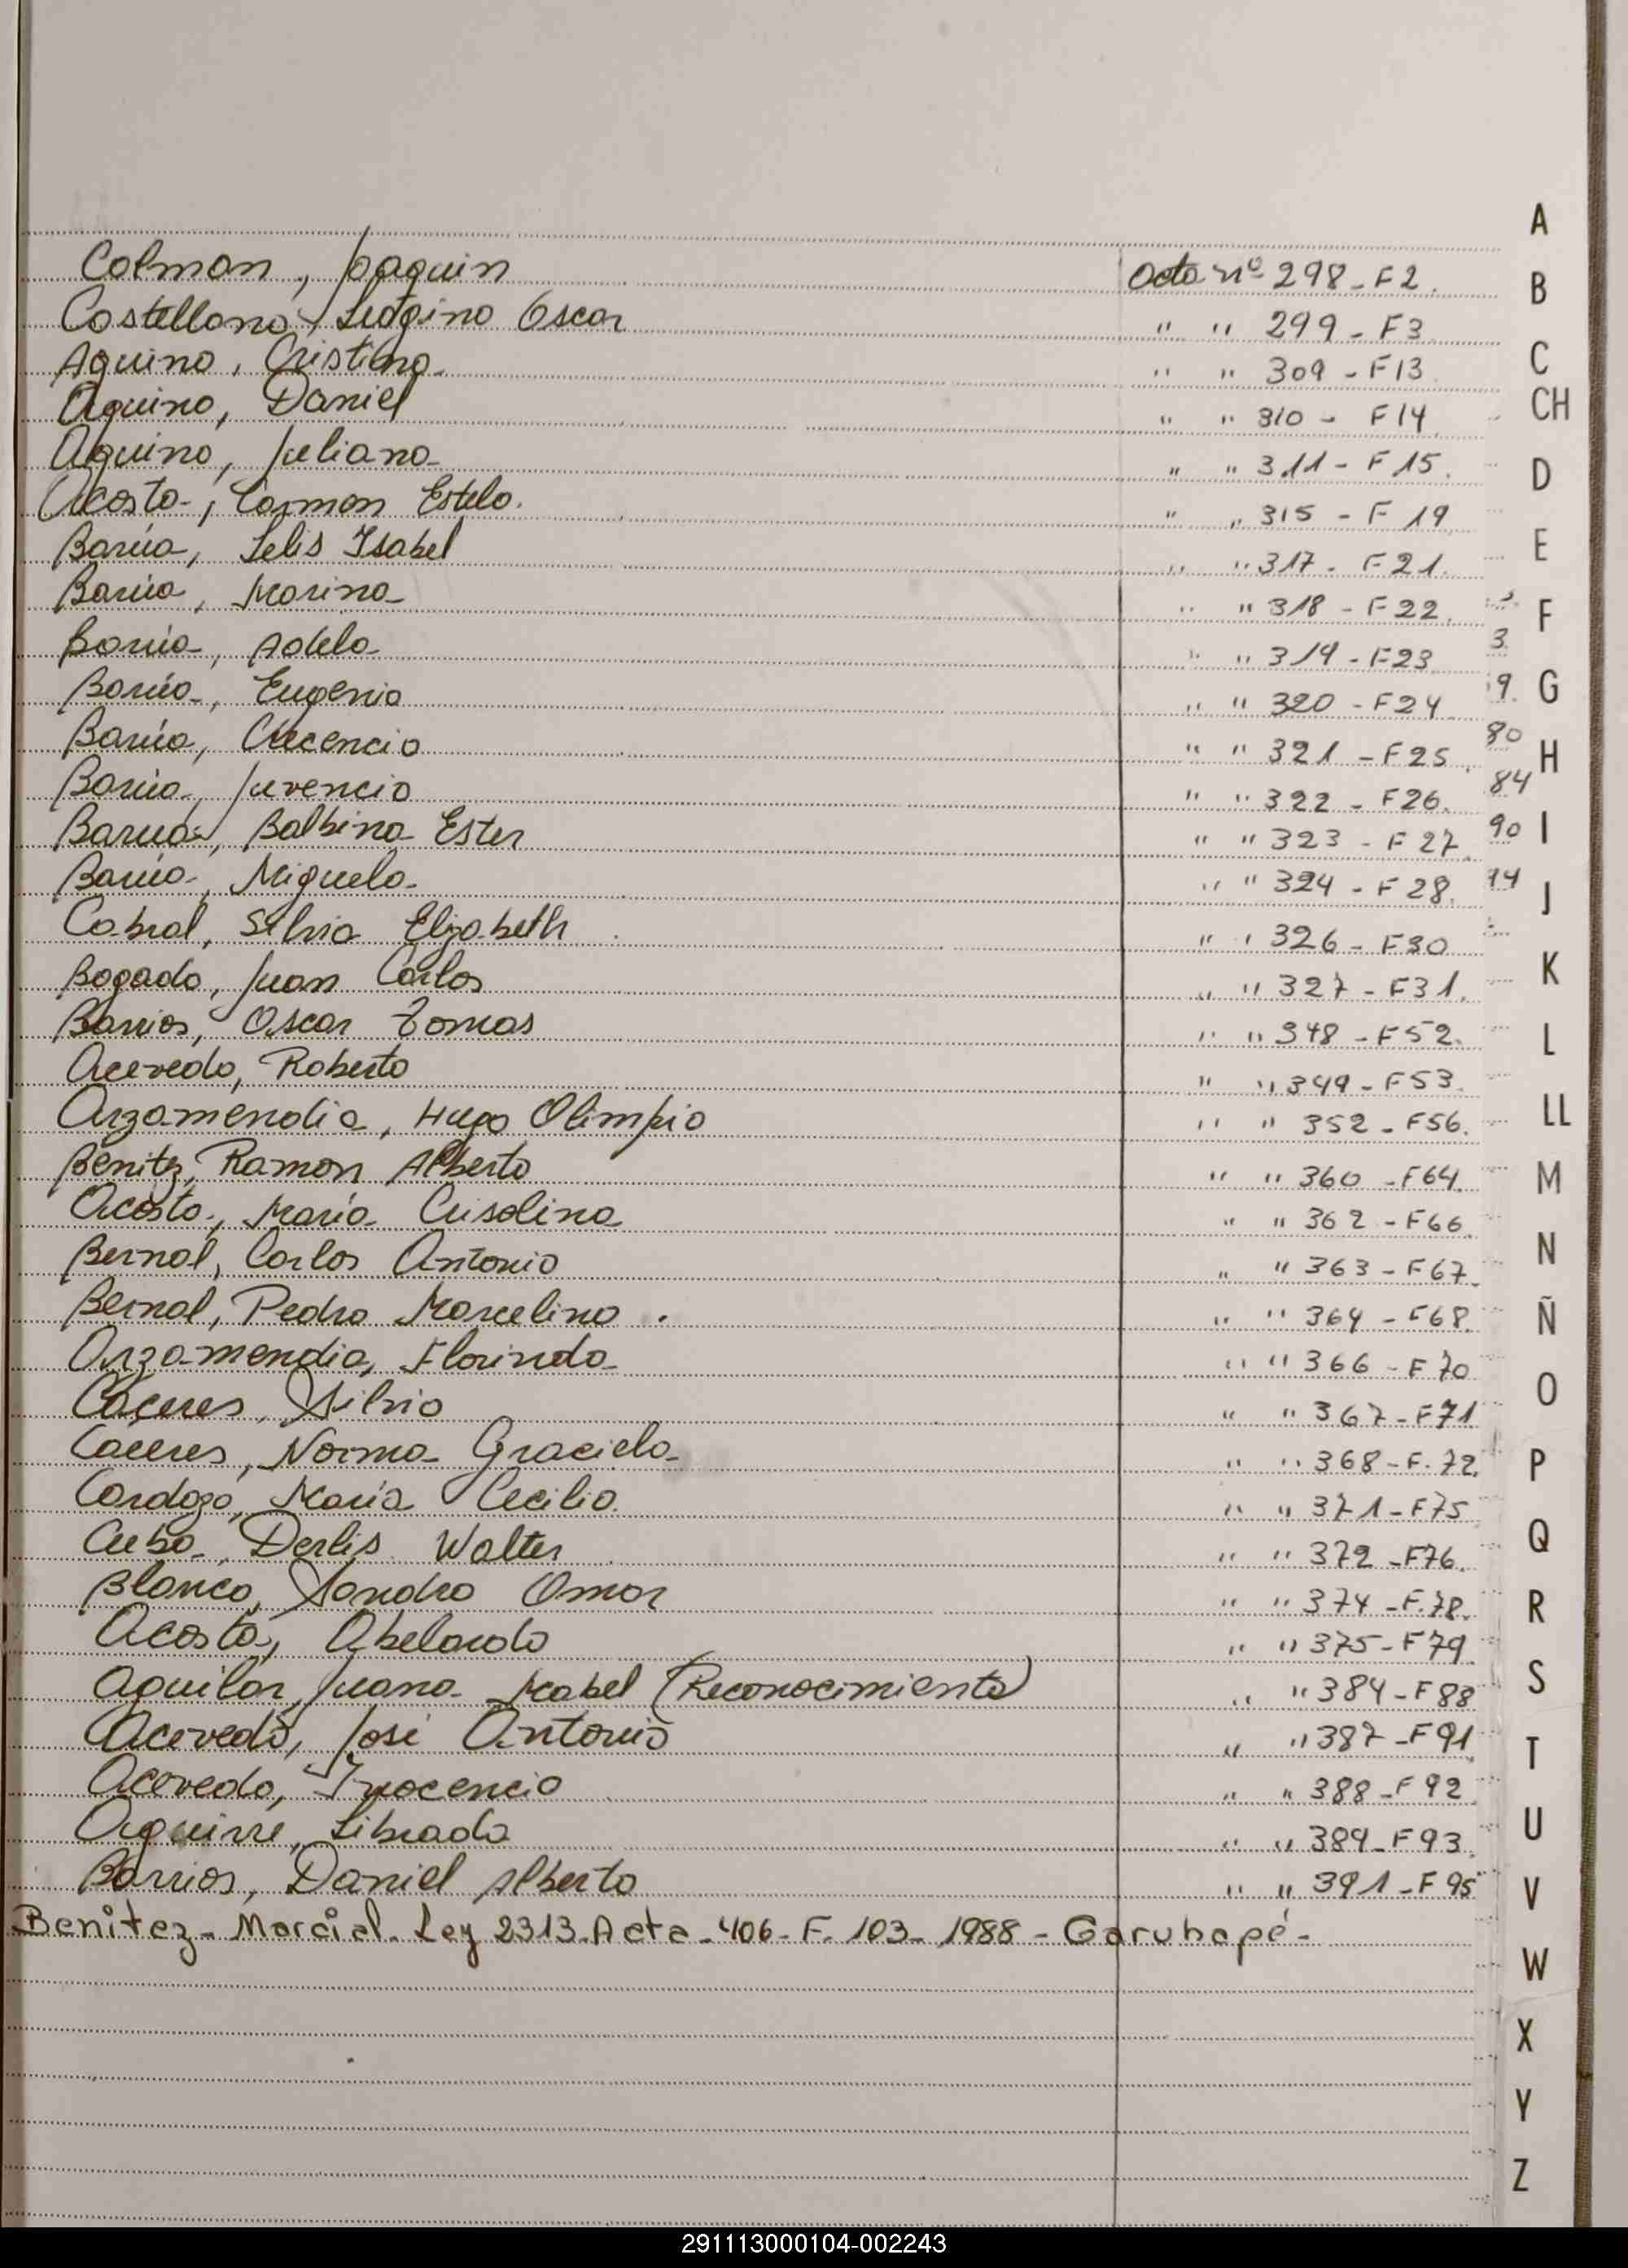 Colman, Joaquin Acta nº 298-F2.
Castellano, Higino Oscar " " 299-F3
Aquino, Cristina " " 309-F13
Aquino, Daniel " " 310- F14
Aquino, Juliana " " 311-F15.
Acosta, Carmen Estela. " " 315-F19
Barúa, Lelis Isabel " " 317- F21.
Barúa, Marina " " 318-F22.
Barúa, Adela " " 319-F23
Barúa, Eugenio " " 320-F24
Barúa, Crecencio " " 321-F25.
Barúa, Juvencio " " 322-F26.
Barúa, Balbina Ester " " 323-F27.
Barúa, Miguela " " 324-F28.
Cabral, Silvia Elizabeth " " 326-F30
Bogado, Juan Carlos " " 327-F31.
Barrios, Oscar Tomas " " 348-F52.
Acevedo, Roberto " " 349-F53.
Arzamendia, Hugo Olimpio " " 352-F56.
Benitez, Ramon Alberto " " 360-F64.
Acosta, María Crisolina " " 362-F66
Bernal, Carlos Antonio " " 363-F67.
Bernal, Pedro Marcelino. " " 364-F68.
Arzamendia, Florinda " " 366-F70
Cáceres, Silvio " " 367-F71
Cáceres, Norma Graciela " " 368-F.72.
Cardozo, María Cecilia " " 371-F75
Cubo, Derlis Walter " " 372-F76.
Blanco, Sandro Omar " " 374-F.78.
Acosta, Abelardo " " 375-F79.
Aguilar, Juana Mabel (Reconocimiento) " " 384-F88
Acevedo, José Antonio " " 387-F91
Acevedo, Inocencio " " 388-F92
Aguirre, Librada " " 389-F93.
Barrios, Daniel Alberto " " 391-F95
Benitez- Marcial- Ley 2313. Acta- 406- F. 103- 1988- Garuhapé-
A
B
C
CH
D
E
F
3.
9. G
80
H
84
90 I
94
J
K
L
LL
M
N
Ñ
O
P
Q
R
S
T
U
V
W
X
Y
Z
291113000104-002243